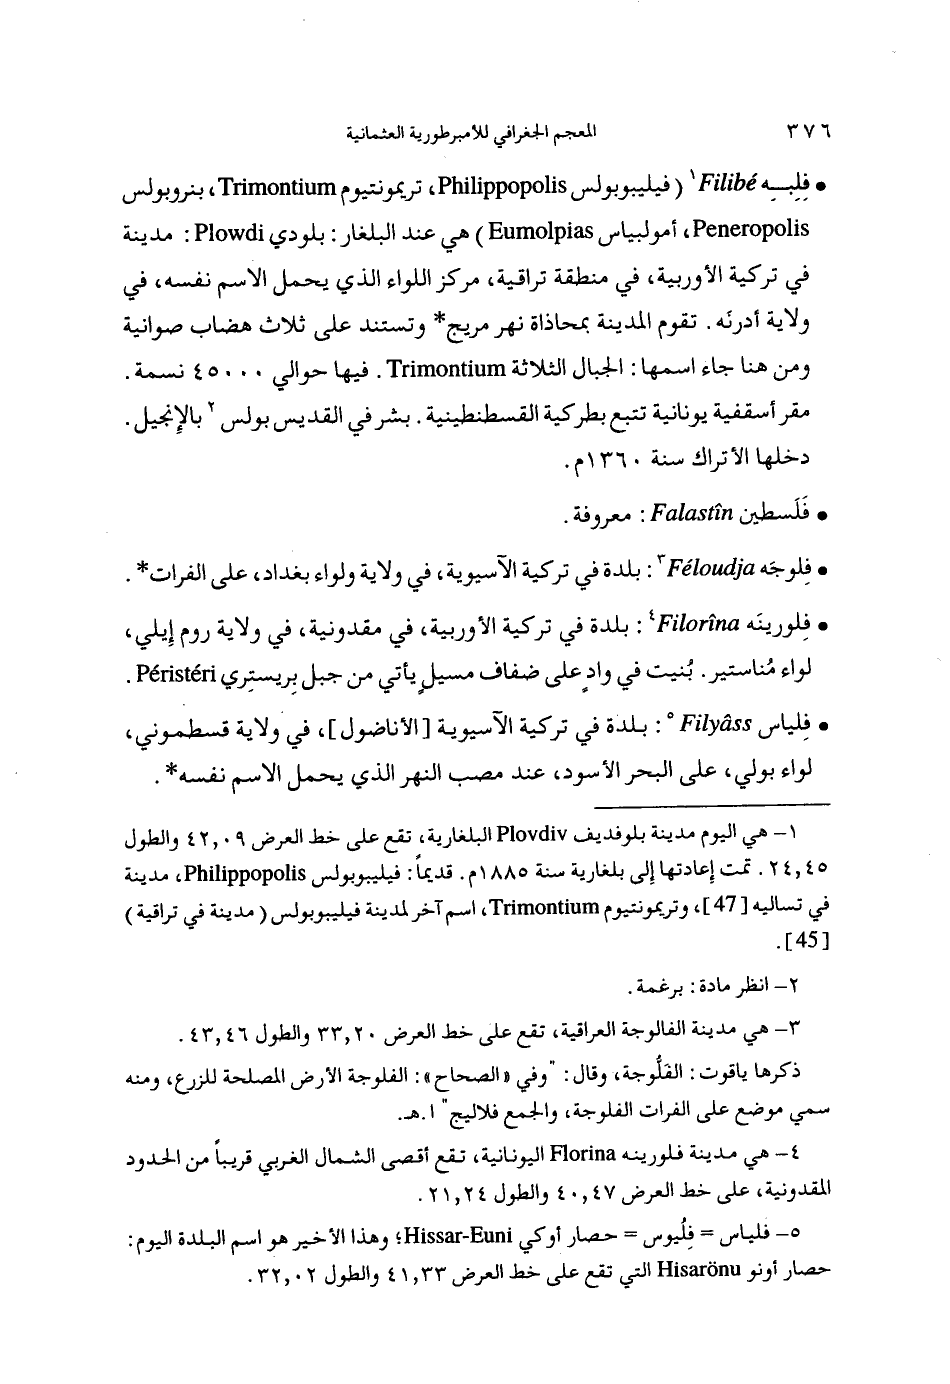 ٣٧٦ المعجم الجغرافي للامبرطورية العثمانية
• فِلِبـِـه Filibé١ ( فيليبوبولس Philippopolis، تريمونتيوم Trimontium، بنروبولس
Peneropolis، أمولبياس Eumolpias ) هي عند البلغار : بلودي Plowdi : مدينة
في تركية الأوربية، في منطقة تراقية، مركز اللواء الذي يحمل الاسم نفسه، في
ولاية أدرنَه . تقوم المدينة بمحاذاة نهر مريج* وتستند على ثلاث هضاب صوانية
ومن هنا جاء اسمها : الجبال الثلاثة Trimontium . فيها حوالي ٤٥٠٠٠ نسمة .
مقر أسقفية يونانية تتبع بطركية القسطنطينية . بشر في القديس بولس ٢ بالإنجيل .
دخلها الأتراك سنة ١٣٦٠م .
• فَلَسطين Falastîn : معروفة .
• فلوجَه Féloudja٣ : بلدة في تركية الآسيوية، في ولاية ولواء بغداد، على الفرات* .
• فِلورينَه Filorîna٤ : بلدة في تركية الأوربية، في مقدونية، في ولاية روم إيلي،
لواء مُناستير . بُنيت في وادٍ على ضفاف مسيلٍ يأتي من جبل بِريستِري Péristéri .
• فِلياس Filyâss ٥ : بلدة في تركية الآسيوية [ الأناضول ]، في ولاية قسطموني،
لواء بولي، على البحر الأسود، عند مصب النهر الذي يحمل الاسم نفسه* .
١– هي اليوم مدينة بلوفديف Plovdiv البلغارية، تقع على خط العرض ٤٢,٠٩ والطول
٢٤,٤٥ . تمت إعادتها إلى بلغارية سنة ١٨٨٥م . قديماً : فيليبوبولس Philippopolis، مدينة
في تساليه [ 47 ]، وتريمونتيوم Trimontium، اسم آخر لمدينة فيليبوبولس ( مدينة في تراقية )
[ 45 ] .
٢– انظر مادة : برغمة .
٣– هي مدينة الفالوجة العراقية، تقع على خط العرض ٣٣,٢٠ والطول ٤٣,٤٦ .
ذكرها ياقوت : الفَلُّوجة، وقال : "وفي «الصحاح» : الفلوجة الأرض المصلحة للزرع، ومنه
سمي موضع على الفرات الفلوجة، والجمع فلاليج" ا.هـ.
٤– هي مدينة فلورينه Florina اليونانية، تقع أقصى الشمال الغربي قريباً من الحدود
المقدونية، على خط العرض ٤٠,٤٧ والطول ٢١,٢٤ .
٥– فلياس = فِلْيوس = حصار أوكي Hissar-Euni؛ وهذا الأخير هو اسم البلدة اليوم :
حصار أونو Hisarönu التي تقع على خط العرض ٤١,٣٣ والطول ٣٢,٠٢ .